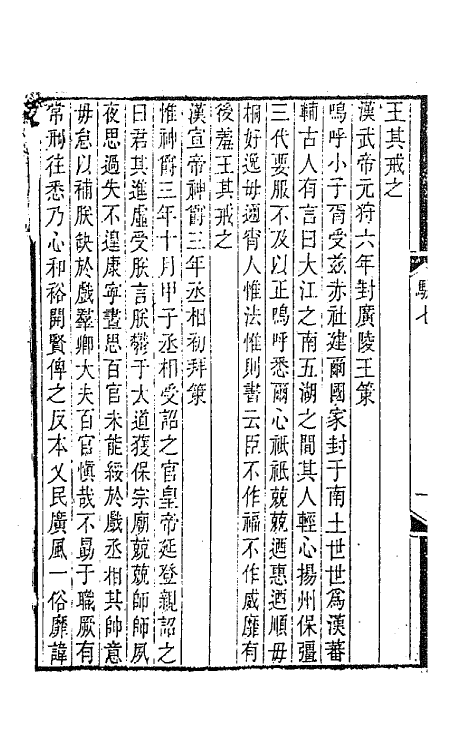 王其戒之
漢武帝元狩六年封廣陵王策
嗚呼小子胥受茲赤社建爾國家封于南土世世為漢蕃
輔古人有言曰大江之南五湖之間其人輕心揚州保彊
三代要服不及以正嗚呼悉爾心祗祗兢兢迺惠迺順毋
桐好逸毋邇宵人惟法惟則書云臣不作福不作威靡有
後羞王其戒之
漢宣帝神爵三年丞相初拜策
惟神爵三年十月甲子丞相受詔之官皇帝延登親詔之
曰君其進虛受朕言朕鬱于大道獲保宗廟兢兢師師夙
夜思過失不遑康寧晝思百官未能綏於戲丞相其帥意
毋怠以補朕缺於戲羣卿大夫百官慎哉不勗于職厥有
常刑往悉乃心和裕開賢俾之反本乂民廣風一俗靡諱
七
一